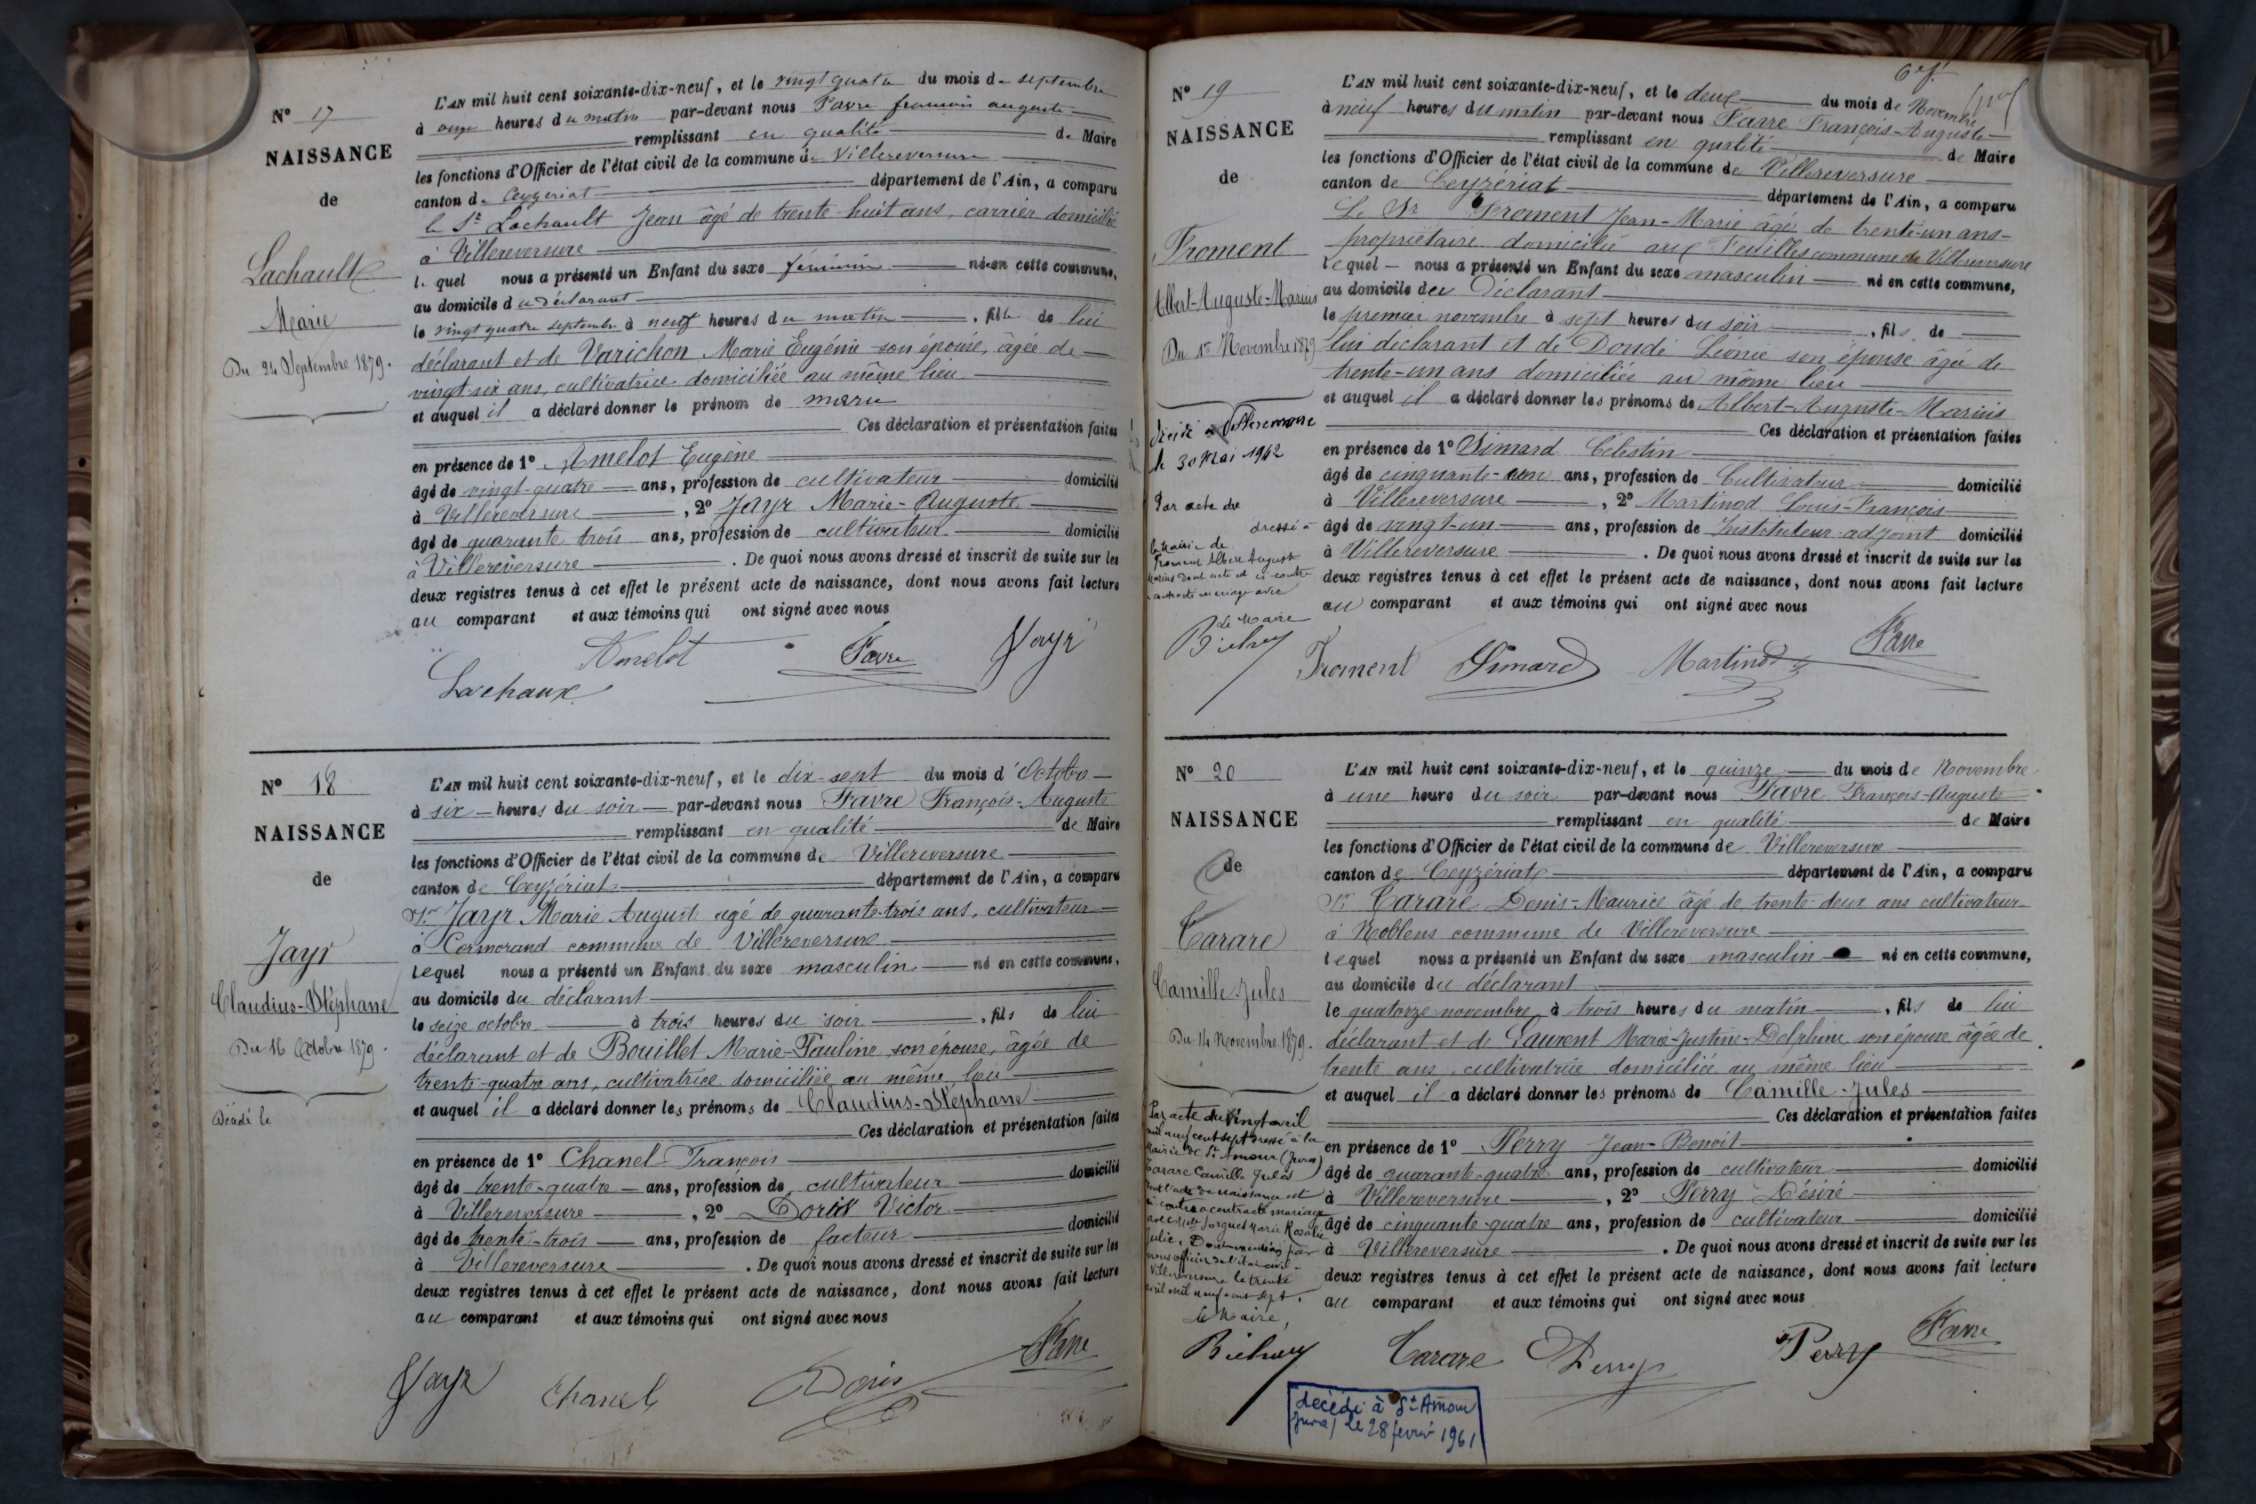 Nº 17
NAISSANCE
de
Lachault
Marie
Du 24 Septembre 1879.
L'AN mil huit cent soixante-dix-neuf, et le vingt quatre du mois de septembre
à onze heures du matin par-devant nous Favre françois auguste
remplissant en qualité de Maire
les fonctions d'Officier de l'état civil de la commune de Villereversure
canton de Ceyzeriat département de l'Ain, a comparu
le Sr Lachault Jean âgé de trente-huit ans, carrier domicilié
à Villereversure
lequel nous a présenté un Enfant du sexe féminin né en cette commune,
au domicile du déclarant
le vingt quatre septembre à neuf heures du matin, fille de lui
déclarant et de Varichon Marie Eugénie son épouse, âgée de
vingt-six ans, cultivatrice domiciliée au même lieu
et auquel il a déclaré donner le prénom de marie
Ces déclaration et présentation faites
en présence de 1º Amelot Eugène
âgé de vingt-quatre ans, profession de cultivateur domicilié
à Villereversure, 2º Jayr Marie-Auguste
âgé de quarante trois ans, profession de cultivateur domicilié
à Villereversure. De quoi nous avons dressé et inscrit de suite sur les
deux registres tenus à cet effet le présent acte de naissance, dont nous avons fait lecture
au comparant et aux témoins qui ont signé avec nous
Amelot Favre Jayr
Lachaux
Nº 18
NAISSANCE
de
Jayr
Claudius-Stéphane
Du 16 Octobre 1879.
Décédé le
L'AN mil huit cent soixante-dix-neuf, et le dix-sept du mois d'Octobre
à six heures du soir par-devant nous Favre François-Auguste
remplissant en qualité de Maire
les fonctions d'Officier de l'état civil de la commune de Villereversure
canton de Ceyzériat département de l'Ain, a comparu
Sr Jayr Marie Auguste agé de quarante-trois ans, cultivateur
à Cormorand commune de Villereversure
lequel nous a présenté un Enfant du sexe masculin né en cette commune,
au domicile du déclarant
le seize octobre à trois heures du soir, fils de lui
déclarant et de Bouillet Marie-Pauline son épouse, âgée de
trente-quatre ans, cultivatrice domiciliée au même lieu
et auquel il a déclaré donner les prénoms de Claudius-Stéphane
Ces déclaration et présentation faites
en présence de 1º Chanel François
âgé de trente-quatre ans, profession de cultivateur domicilié
à Villereversure, 2º Doris Victor
âgé de trente-trois ans, profession de facteur domicilié
à Villereversure. De quoi nous avons dressé et inscrit de suite sur les
deux registres tenus à cet effet le présent acte de naissance, dont nous avons fait lecture
au comparant et aux témoins qui ont signé avec nous
Jayr Chanel Doris Favre
Nº 19
NAISSANCE
de
Froment
Albert-Auguste-Marius
Du 1er Novembre 1879
Décédé à Villereversure
le 30 Mai 1942
Par acte du
dressé
la mairie de
Froment Albert Auguste
Marius dont acte est ci-contre
a contracté mariage avec
Le Maire
L'AN mil huit cent soixante-dix-neuf, et le deux du mois de Novembre
à neuf heures du matin par-devant nous Favre François-Auguste
remplissant en qualité de Maire
les fonctions d'Officier de l'état civil de la commune de Villereversure
canton de Ceyzériat département de l'Ain, a comparu
Le Sr Froment Jean-Marie âgé de trente-un ans
propriétaire domicilié aux Feuilles commune de Villereversure
lequel nous a présenté un Enfant du sexe masculin né en cette commune,
au domicile du Déclarant
le premier novembre à sept heures du soir, fils de
lui déclarant et de Doudé Léonie son épouse âgée de
trente-un ans domiciliée au même lieu
et auquel il a déclaré donner les prénoms de Albert-Auguste-Marius
Ces déclaration et présentation faites
en présence de 1º Simard Célestin
âgé de cinquante-un ans, profession de Cultivateur domicilié
à Villereversure, 2º Martinod Louis-François
âgé de vingt-un ans, profession de Instituteur-adjoint domicilié
à Villereversure. De quoi nous avons dressé et inscrit de suite sur les
deux registres tenus à cet effet le présent acte de naissance, dont nous avons fait lecture
au comparant et aux témoins qui ont signé avec nous
Froment Simard Martinod Favre
Nº 20
NAISSANCE
de
Carare
Camille Jules
Du 14 Novembre 1879.
Par acte du vingt avril
mil neuf cent sept dressé à la
Mairie de St Amour (Jura)
Carare Camille Jules
dont l'acte de naissance est
ci contre a contracté mariage
avec Melle Marie Rosalie
Julie. Dont mention par
nous officier de l'état civil
Villereversure le trente
avril mil neuf cent sept.
Le Maire,
L'AN mil huit cent soixante-dix-neuf, et le quinze du mois de Novembre
à une heure du soir par-devant nous Favre François-Auguste
remplissant en qualité de Maire
les fonctions d'Officier de l'état civil de la commune de Villereversure
canton de Ceyzériat département de l'Ain, a comparu
Sr Carare Denis-Maurice âgé de trente-deux ans cultivateur
à Noblens commune de Villereversure
lequel nous a présenté un Enfant du sexe masculin né en cette commune,
au domicile du déclarant
le quatorze novembre à trois heures du matin, fils de lui
déclarant et de Laurent Marie-Justine-Delphine son épouse âgée de
trente ans, cultivatrice domiciliée au même lieu
et auquel il a déclaré donner les prénoms de Camille-Jules
Ces déclaration et présentation faites
en présence de 1º Perry Jean-Benoît
âgé de quarante-quatre ans, profession de cultivateur domicilié
à Villereversure, 2º Perry Désiré
âgé de cinquante-quatre ans, profession de cultivateur domicilié
à Villereversure. De quoi nous avons dressé et inscrit de suite sur les
deux registres tenus à cet effet le présent acte de naissance, dont nous avons fait lecture
au comparant et aux témoins qui ont signé avec nous
Carare Perry Perry Favre
décédé à St Amour
Jura) le 28 février 1961